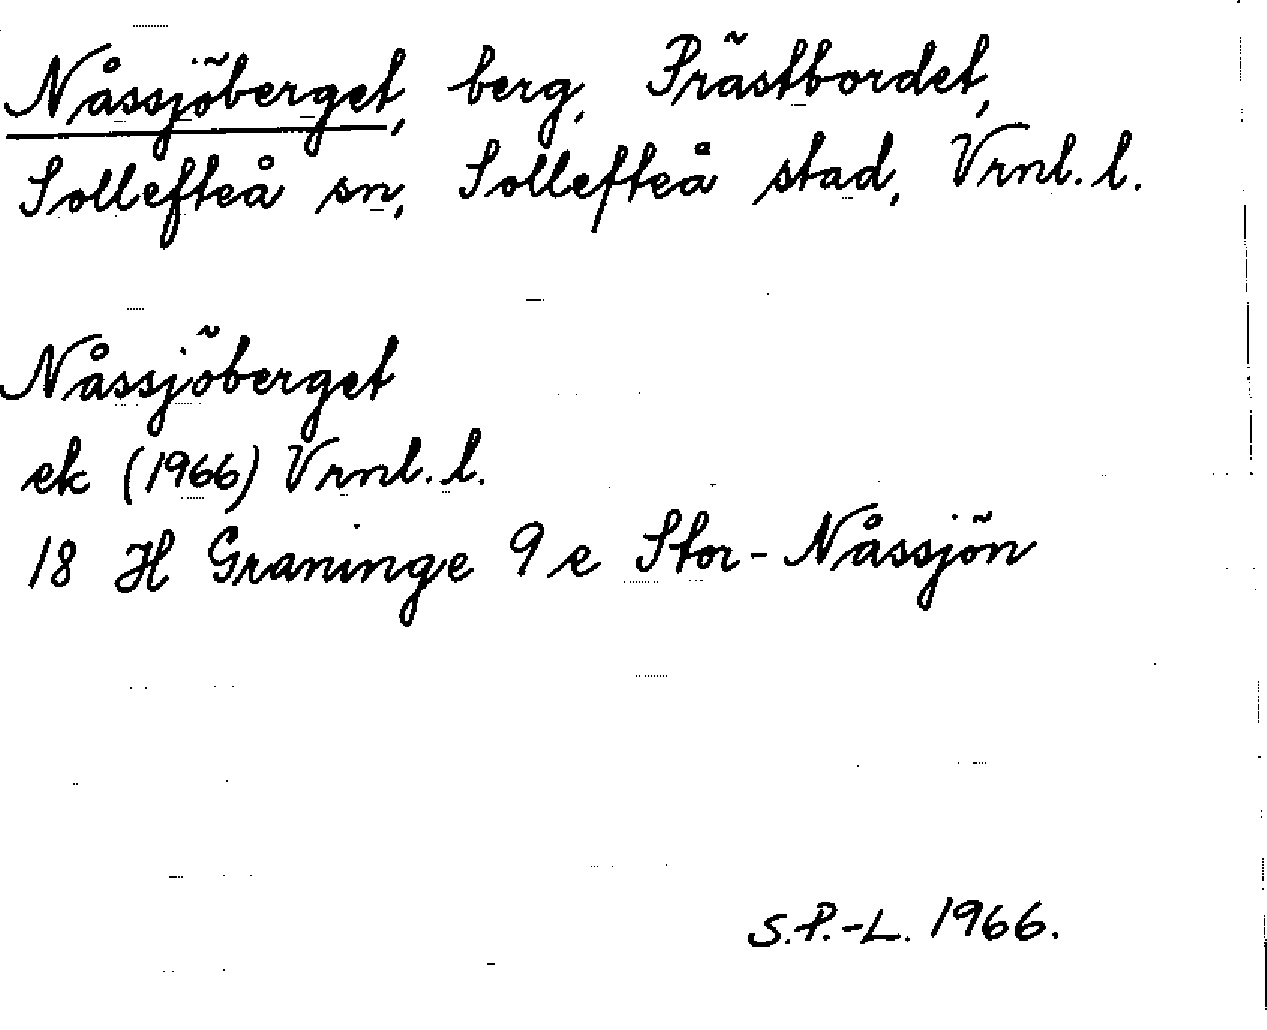 Nåssjöberget, berg, Prästbordet,
Sollefteå sn, Sollefteå stad, Vrml. l.
Nåssjöberget
ek (1966) Vrml. l.
18 H Graninge 9 e Stor-Nåssjön
S.P.-L. 1966.